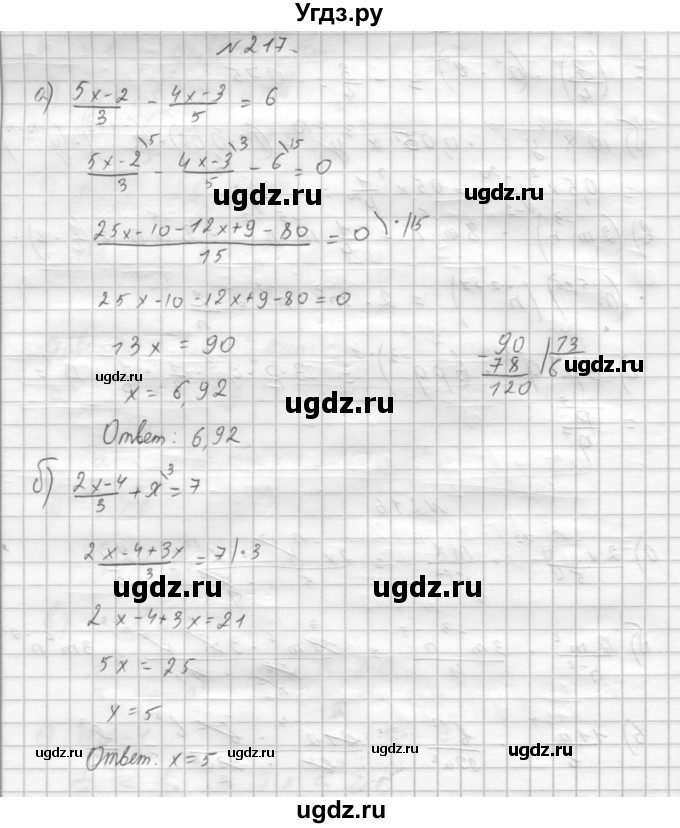 Угдз.ру
№217.
а) (5x-2)/3 - (4x-3)/5 = 6
(5x-2\5)/3 - (4x-3\3)/5 - 6\15 = 0
ugdz.ru ugdz.ru
(25x-10-12x+9-80)/15 = 0 \·/15
ugdz.ru
25x-10-12x+9-80=0
13x = 90
-90 |13
78 6 ugdz.ru
120
ugdz.ru
x = 6,92
ugdz.ru
Ответ: 6,92
б) (2x-4)/3 + x\3 = 7
(2x-4+3x)/3 = 7 |·3
ugdz.ru ugdz.ru
2x-4+3x=21
5x = 25
x=5
Ответ: x=5
ugdz.ru ugdz.ru ugdz.ru ugdz.ru ugdz.ru
ugdz.ru